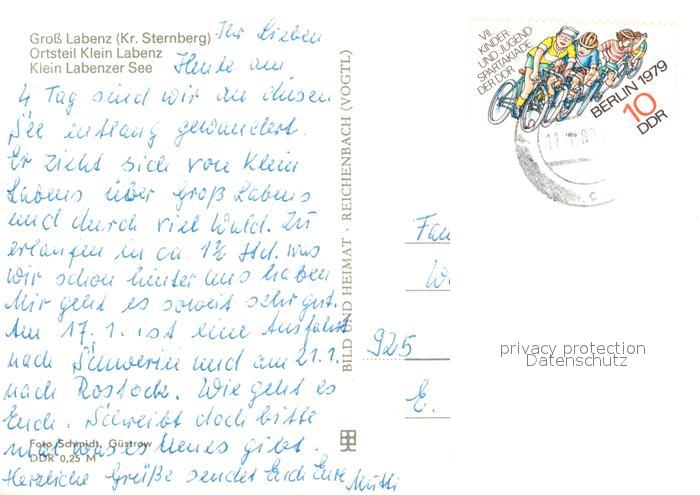 Groß Labenz (Kr. Sternberg)
Ortsteil Klein Labenz
Klein Labenzer See
Ihr Lieben
Heute am
4 Tag sind wir an diesen
See entlang gewandert.
Er zieht sich von Klein
Labens über Groß Labens
und durch viel Wald. Zu
erlaufen in ca. 1½ Std. was
wir schon hinter uns haben
Mir geht es soweit sehr gut.
Am 17.1. ist eine Ausfahrt
nach Schwerin und am 21.1.
nach Rostock. Wie geht es
Euch. Schreibt doch bitte
mal was es Neues gibt.
Herzliche Grüße sendet Euch Eure Mutti
Foto Schmidt, Güstrow
DDR 0,25 M
BILD UND HEIMAT · REICHENBACH (VOGTL)
VII
KINDER-
UND JUGEND
SPARTAKIADE
DER DDR
BERLIN 1979
10
DDR
Fam
W
925
E.
privacy protection
Datenschutz